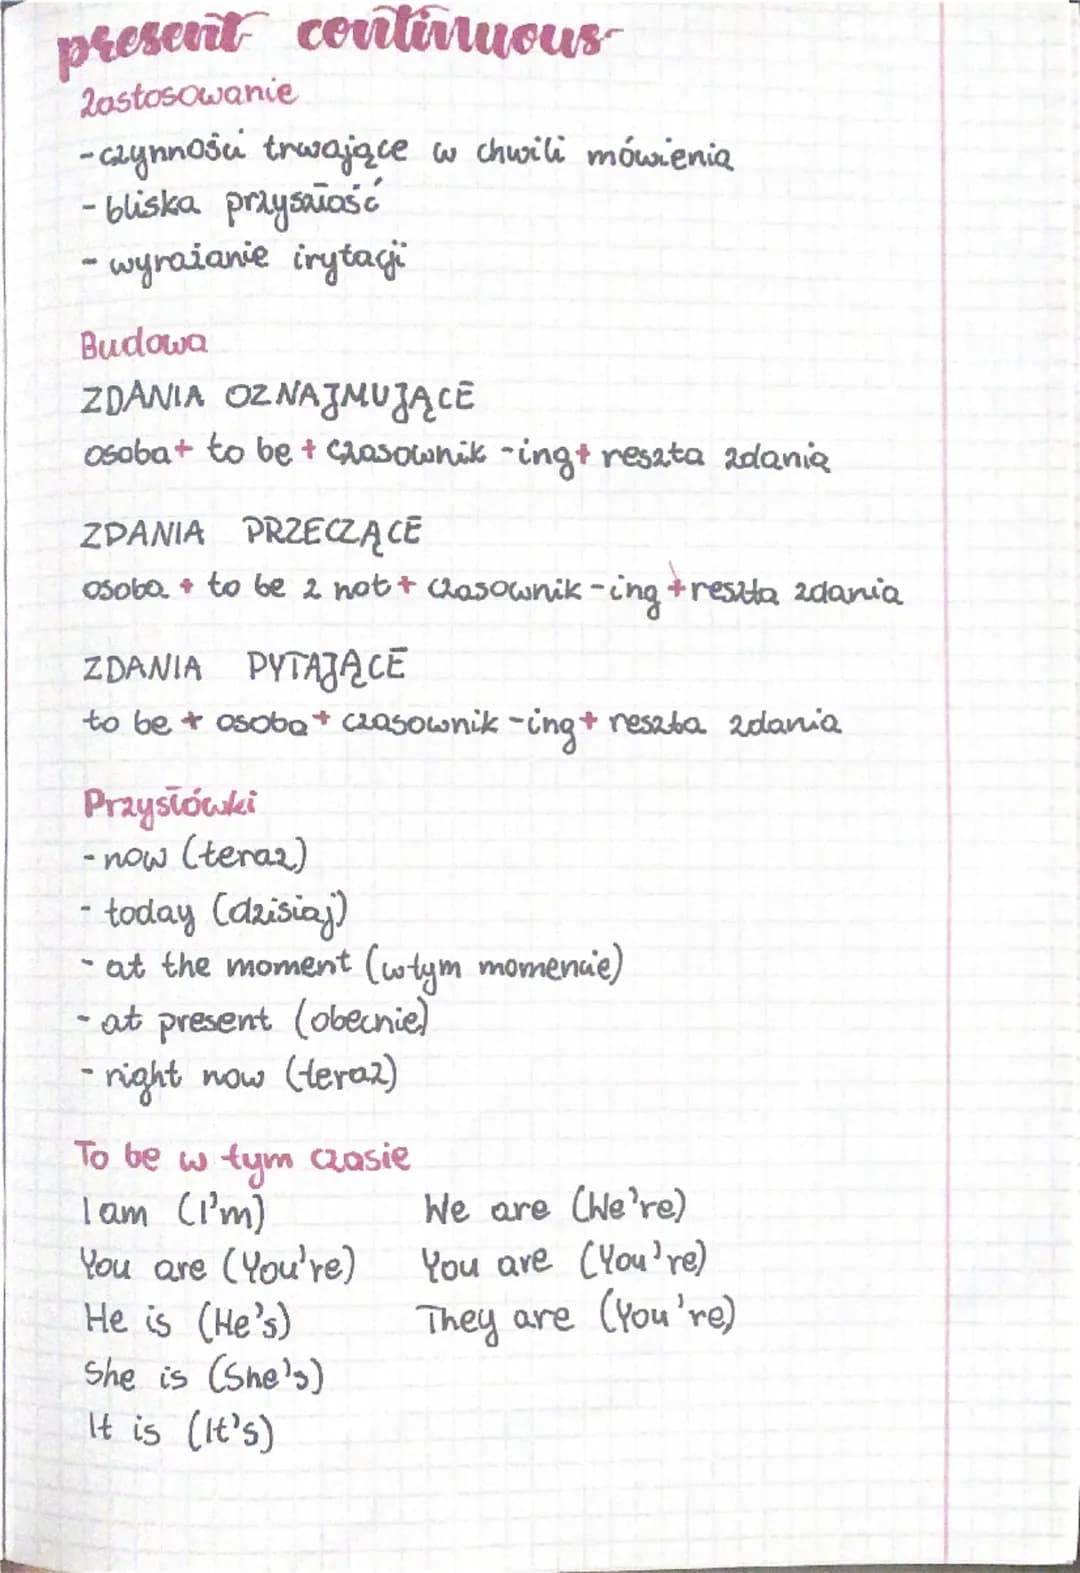 present continuous
Zastosowanie
-czynności trwające w chwili mówienia
-bliska przyszłość
-wyrażanie irytacji
Budowa
ZDANIA OZNAJMUJĄCE
osoba+ to be + czasownik -ing+ reszta zdania
ZDANIA PRZECZĄCE
osoba + to be z not + czasownik -ing + reszta zdania
ZDANIA PYTAJĄCE
to be + osoba + czasownik -ing + reszta zdania
Przysłówki
-now (teraz)
- today (dzisiaj)
- at the moment (w tym momencie)
- at present (obecnie)
- right now (teraz)
To be w tym czasie
I am (I'm) We are (We're)
You are (You're) You are (You're)
He is (He's) They are (You're)
She is (She's)
It is (It's)